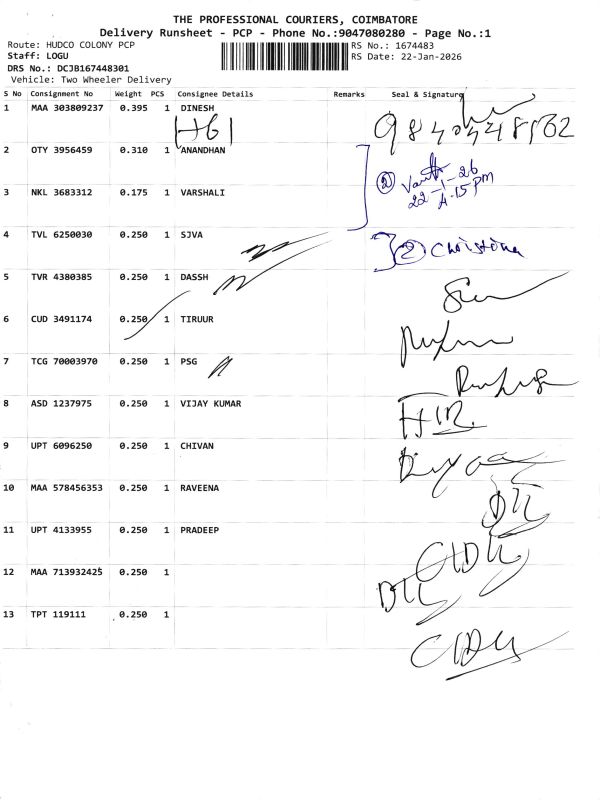 THE PROFESSIONAL COURIERS, COIMBATORE
Delivery Runsheet - PCP - Phone No.:9047080280 - Page No.:1
Route: HUDCO COLONY PCP
Staff: LOGU
DRS No.: DCJB167448301
Vehicle: Two Wheeler Delivery
RS No.: 1674483
RS Date: 22-Jan-2026
S No Consignment No Weight PCS Consignee Details Remarks Seal & Signature
1 MAA 303809237 0.395 1 DINESH
H61
2 OTY 3956459 0.310 1 ANANDHAN
② 22-1-26
4.15pm
3 NKL 3683312 0.175 1 VARSHALI
4 TVL 6250030 0.250 1 SJVA
② Christina
5 TVR 4380385 0.250 1 DASSH
6 CUD 3491174 0.250 1 TIRUUR
7 TCG 70003970 0.250 1 PSG
8 ASD 1237975 0.250 1 VIJAY KUMAR
9 UPT 6096250 0.250 1 CHIVAN
10 MAA 578456353 0.250 1 RAVEENA
11 UPT 4133955 0.250 1 PRADEEP
12 MAA 713932425 0.250 1
13 TPT 119111 0.250 1